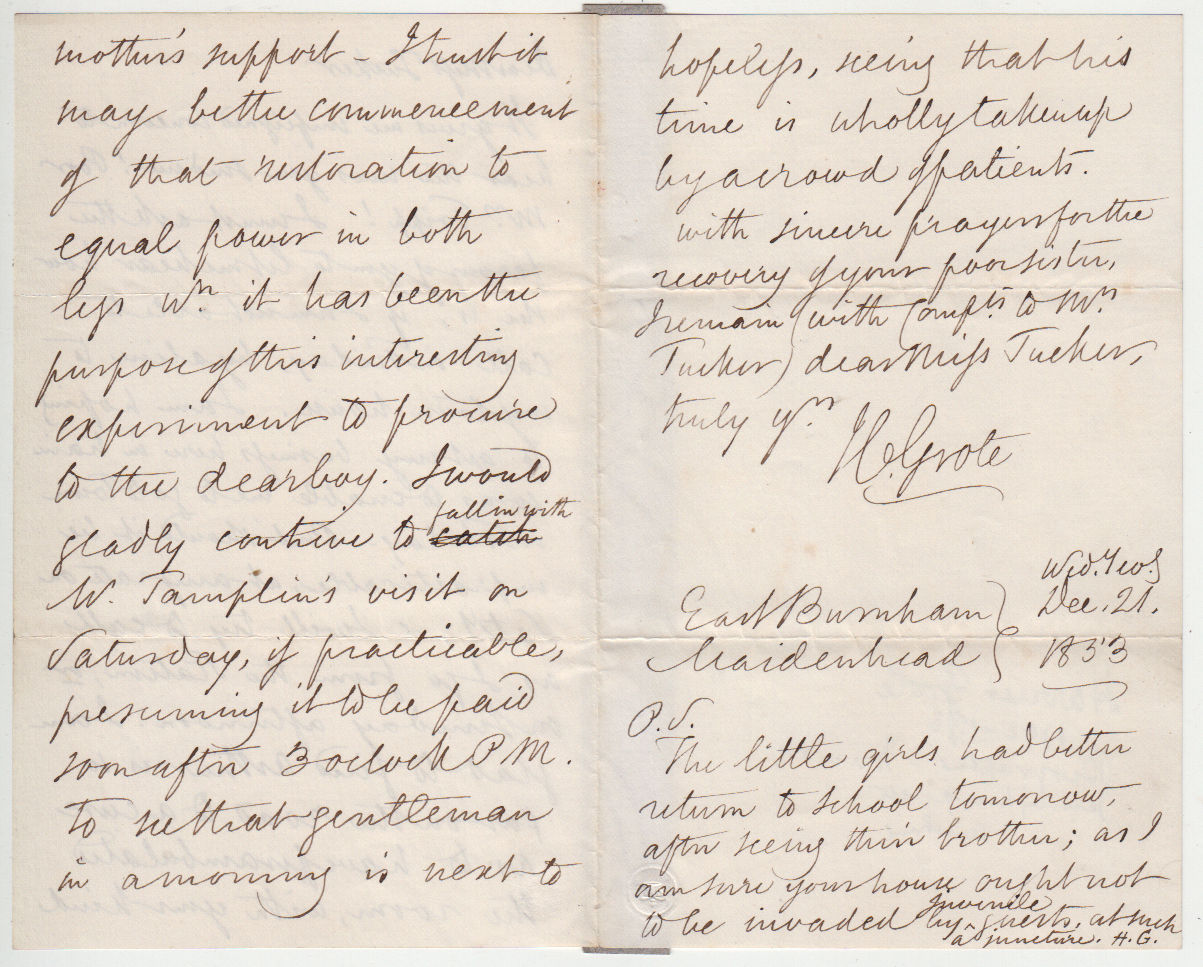 mother's support - I trust it
may be the commencement
of that restoration to
equal power in both
legs wh it has been the
purpose of this interesting
experiment to procure
to the dear boy. I would
fall in with
gladly contrive to catch
Mr. Tamplin's visit on
Saturday, if practicable,
presuming it to be paid
soon after 3 oclock P M.
To see that gentleman
in a morning is next to
hopeless, seeing that his
time is wholly taken up
by a crowd of patients.
with sincere prayers for the
recovery of your poor sister,
I remain (with Compts to Mrs
Tucker) dear Miss Tucker,
truly yrs
H. Grote
East Burnham
Maidenhead
Dec. 21.
1853
P.S.
The little girls had better
return to school tomorrow,
after seeing their brother; as I
am sure your house ought not
juvenile
to be invaded by guests, at such
a juncture. H.G.